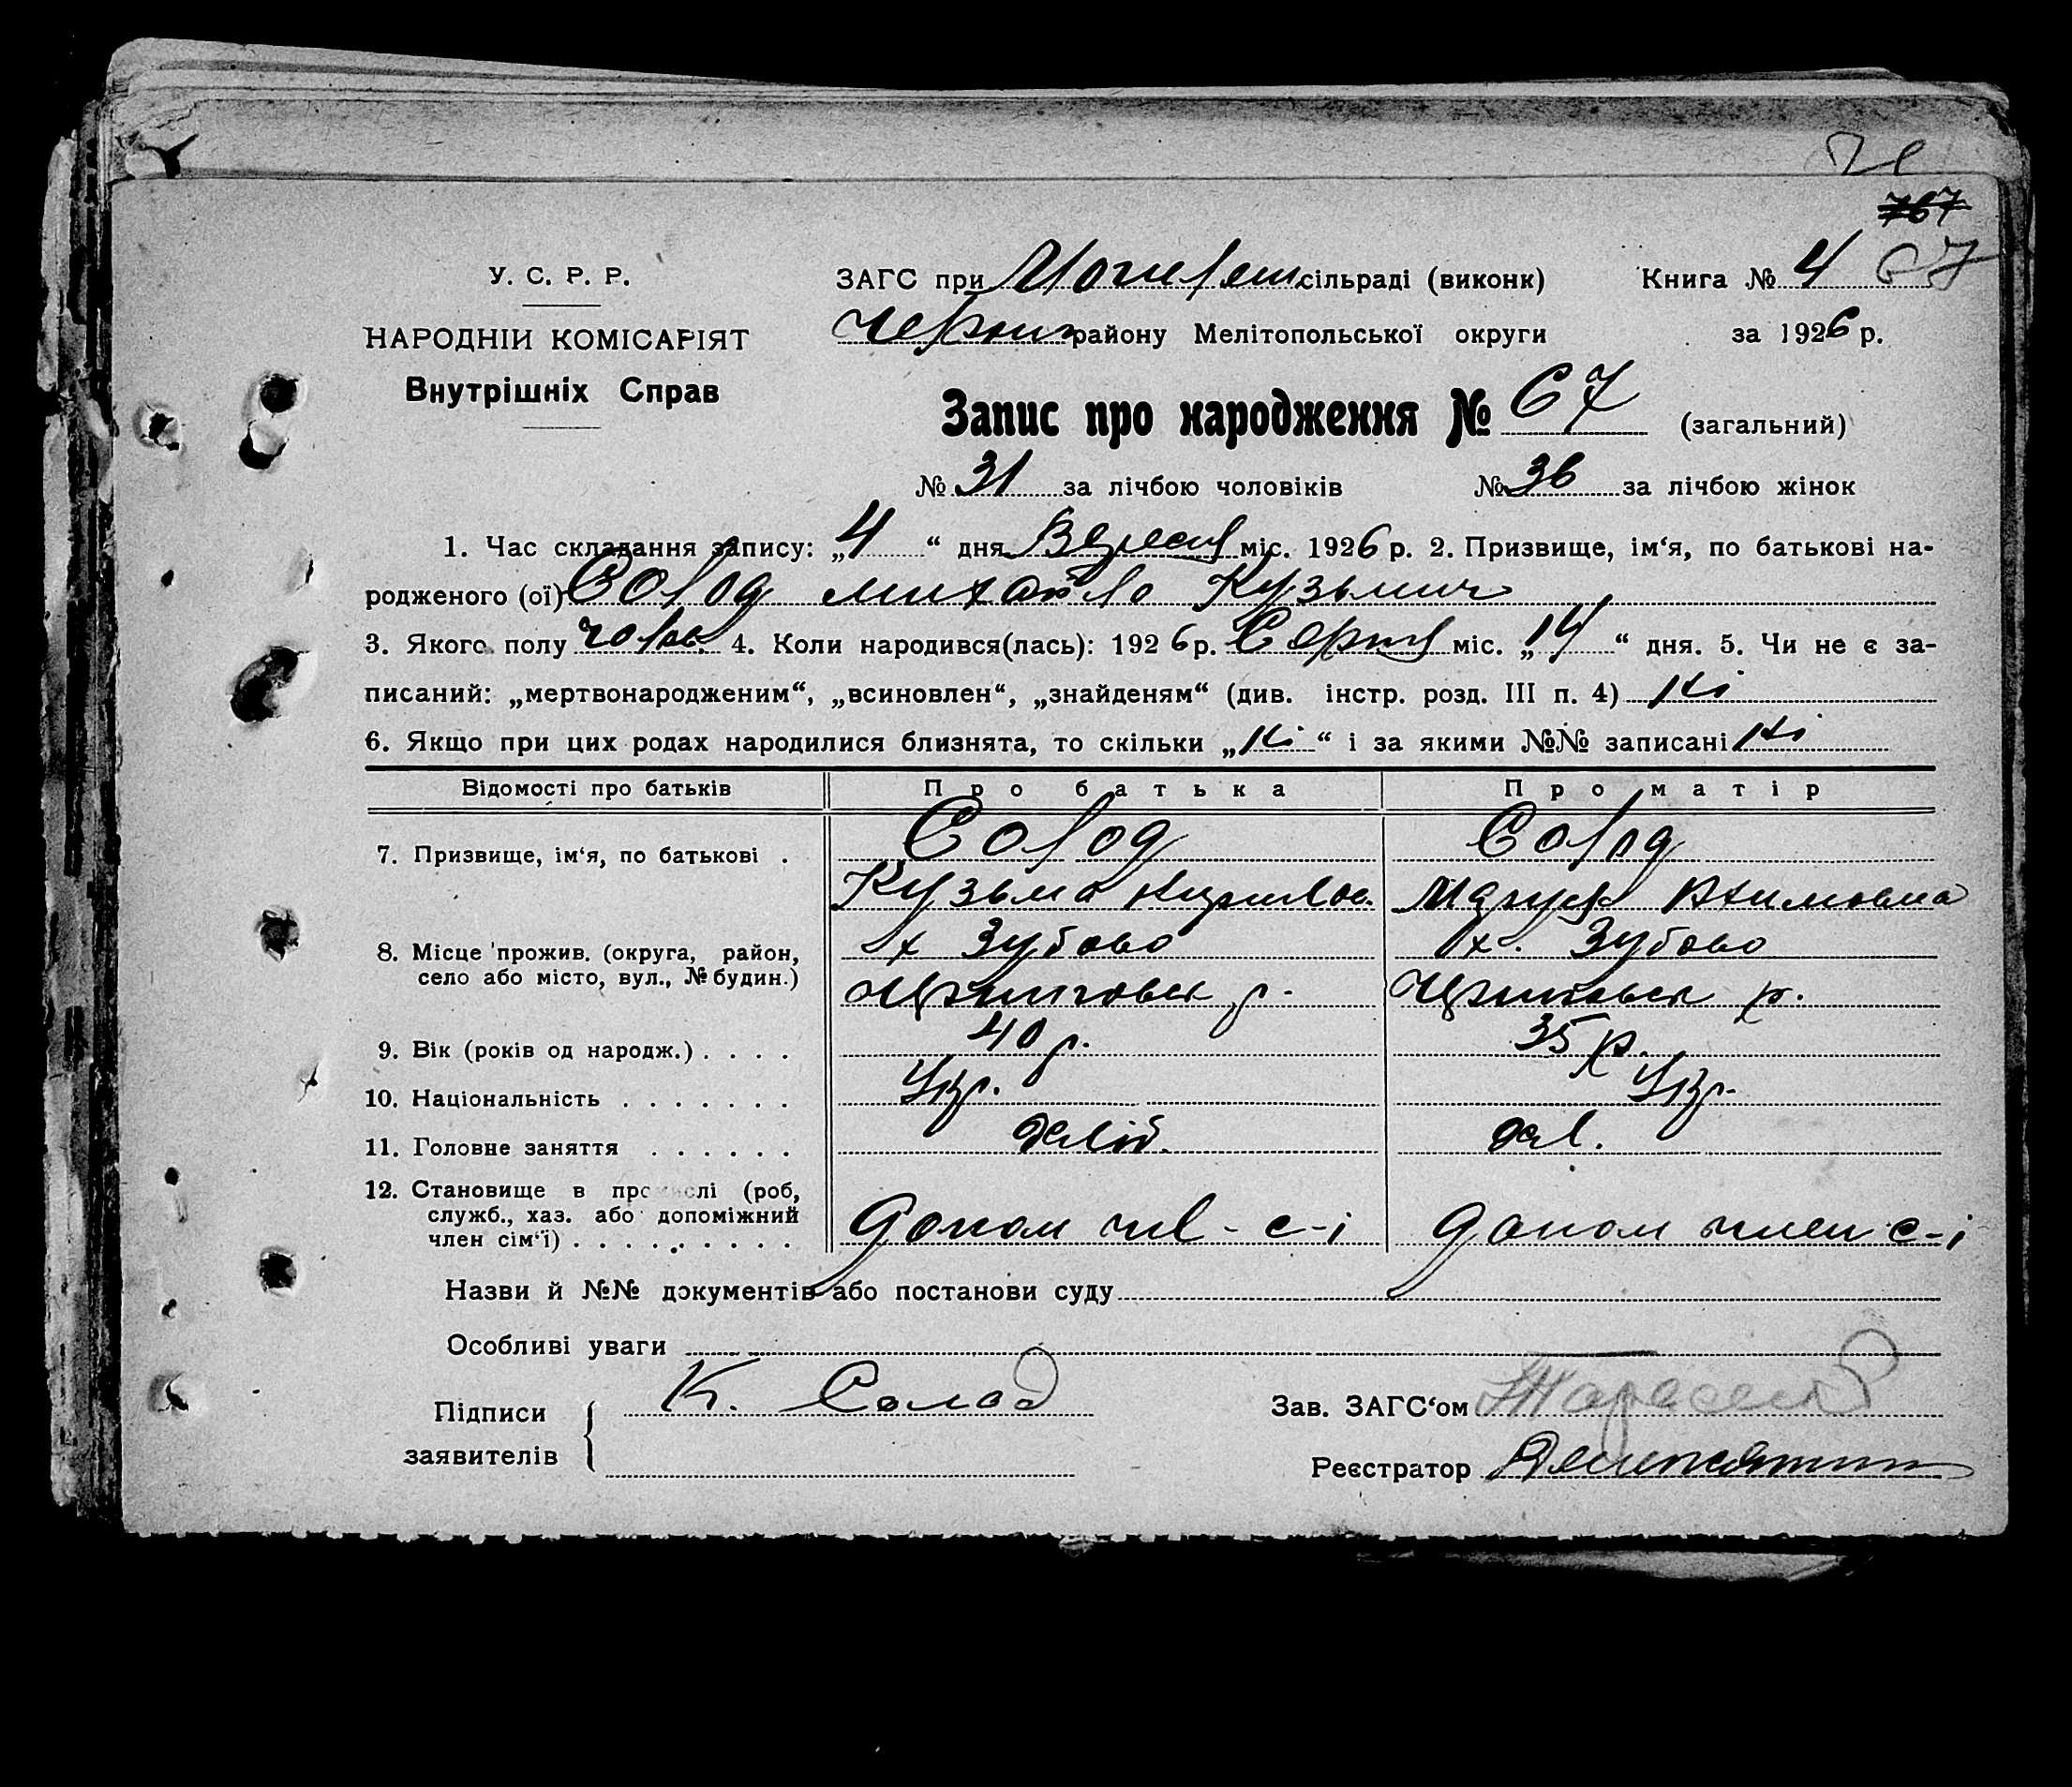 767
67
У. С. Р. Р.
НАРОДНІЙ КОМІСАРІЯТ
Внутрішніх Справ
ЗАГС при сільраді (виконк) Книга № 4
Черниг району Мелітопольської округи за 1926 р.
Запис про народження № 67 (загальний)
№ 31 за лічбою чоловіків № 36 за лічбою жінок
1. Час складання запису: „4“ дня Вересня міс. 1926 р. 2. Призвище, ім‘я, по батькові на-
родженого (ої) Солод Михайло Кузьмич
3. Якого полу чолов. 4. Коли народився(лась): 1926 р. Серпня міс. „14“ дня. 5. Чи не є за-
писаний: „мертвонародженим“, „всиновлен“, „знайденям“ (див. інстр. розд. III п. 4) Ні
6. Якщо при цих родах народилися близнята, то скільки „Ні“ і за якими №№ записані Ні
Відомості про батьків Про батька Про матір
7. Призвище, ім‘я, по батькові . Солод Солод
Кузьма Кирилов. Акимовна
8. Місце прожив. (округа, район, х Зубово х. Зубово
село або місто, вул., № будин.) р. р.
9. Вік (років од народж.) . . . . 40 р. 35 р.
10. Національність . . . . . . . Укр. Укр.
11. Головне заняття . . . . . .
12. Становище в промислі (роб,
служб., хаз. або допоміжний допом чл-с-і допом член с-і
член сім‘ї) . . . . . . . . .
Назви й №№ документів або постанови суду
Особливі уваги
Підписи К. Солод Зав. ЗАГС‘ом
заявителів Реєстратор